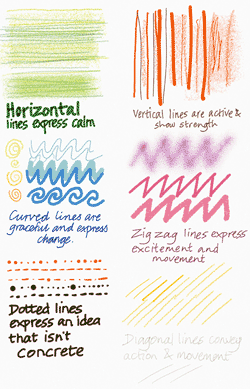 Horizontal
lines express calm
Vertical lines are active &
show strength
Curved lines are
graceful and express
change.
Zig zag lines express
excitement and
movement
Dotted lines
express an idea
that isn't
CONCRETE
Diagonal lines convey
action & movement